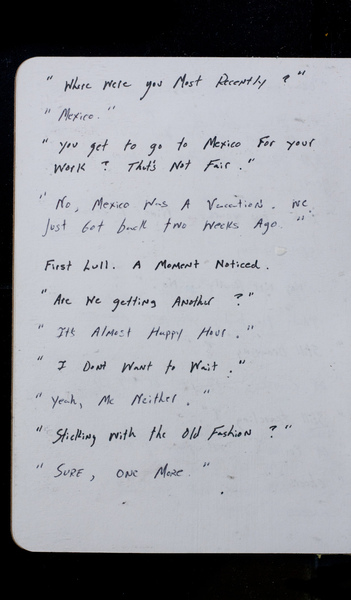 " Where were you Most Recently ? "
" Mexico. "
" You get to go to Mexico For your
work ? That's Not Fair. "
" No, Mexico was A Vacation. We
Just Got back two weeks Ago. "
First Lull. A Moment Noticed.
" Are We getting Another ? "
" Its Almost Happy Hour. "
" I Dont Want to Wait. "
" Yeah, Me Neither. "
" Sticking with the Old Fashion ? "
" Sure, one More. "